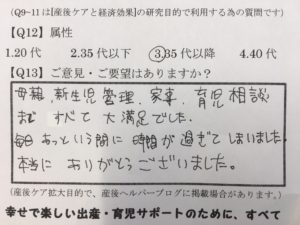 (Q9~11は[産後ケアと経済効果]の研究目的で利用する為の質問です)
【Q12】属性
1.20代 2.35代以下 3.35代以降 4.40代
【Q13】ご意見・ご要望はありますか?
母親、新生児管理、家事、育児相談
まで すべて 大満足でした.
毎日 あっという間に 時間が 過ぎてしまいました.
本当に ありがとうございました。
(産後ケア拡大目的で、産後ヘルパーブログに掲載場合があります。)
幸せで楽しい出産・育児サポートのために、すべて